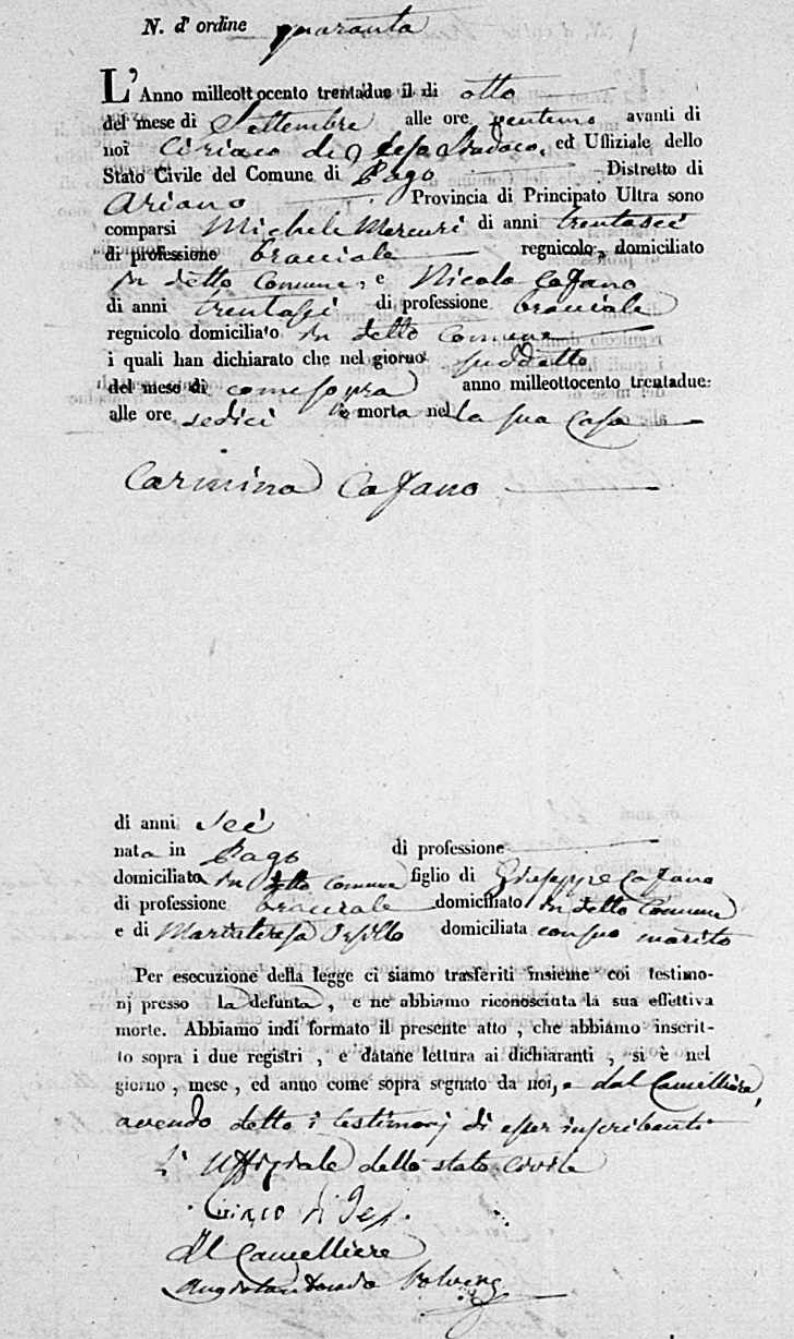 N. d' ordine quaranta
L'Anno milleottocento trentadue il di otto
del mese di Settembre alle ore ventuno avanti di
noi Ciriaco di Sindaco, ed Uffiziale dello
Stato Civile del Comune di Pago Distretto di
Ariano Provincia di Principato Ultra sono
comparsi Michele Mercuri di anni trentasei
di professione bracciale regnicolo, domiciliato
in detto Comune, e Nicola Cafano
di anni trentasei di professione bracciale
regnicolo domiciliato in detto Comune
i quali han dichiarato che nel giorno suddetto
del mese di come sopra anno milleottocento trentadue
alle ore sedici è morta nella sua Casa
Carmina Cafano
di anni sei
nata in Pago di professione
domiciliata in detto Comune figlio di Giuseppe Cafano
di professione bracciale domiciliato in detto Comune
e di Mariateresa domiciliata con suo marito
Per esecuzione della legge ci siamo trasferiti insieme coi testimo-
nj presso la defunta, e ne abbiamo riconosciuta la sua effettiva
morte. Abbiamo indi formato il presente atto, che abbiamo inscrit-
to sopra i due registri, e datane lettura ai dichiaranti, si è nel
giorno, mese, ed anno come sopra segnato da noi, e dal Cancelliere,
avendo detto i testimonj di esser inscribenti
L' Uffiziale dello stato civile
Ciriaco di
Il Cancelliere